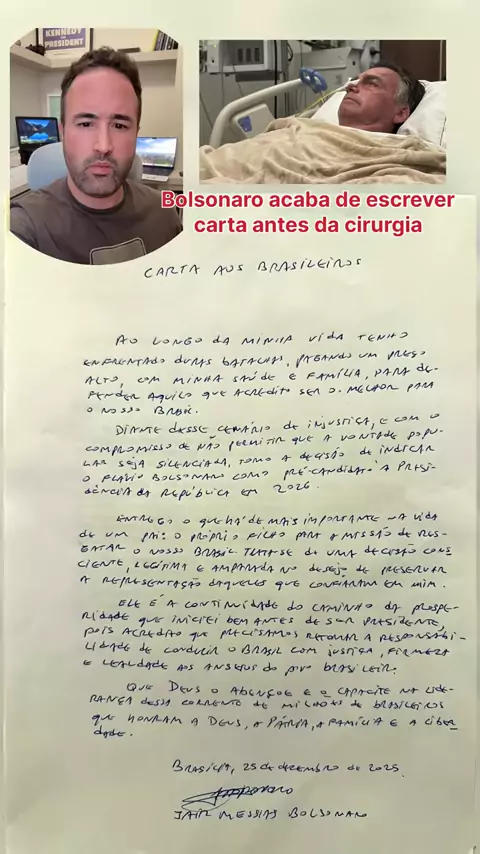 KENNEDY
PRESIDENT
Bolsonaro acaba de escrever
carta antes da cirurgia
CARTA AOS BRASILEIROS
AO LONGO DA MINHA VIDA TENHO
ENFRENTADO DURAS BATALHAS, PAGANDO UM PREÇO
ALTO, COM MINHA SAÚDE E FAMÍLIA, PARA DE-
FENDER AQUILO QUE ACREDITO SER O MELHOR PARA
O NOSSO BRASIL.
DIANTE DESSE CENÁRIO DE INJUSTIÇA, E COM O
COMPROMISSO DE NÃO PERMITIR QUE A VONTADE POPU-
LAR SEJA SILENCIADA, TOMO A DECISÃO DE INDICAR
O FLÁVIO BOLSONARO COMO PRÉ-CANDIDATO À PRESI-
DÊNCIA DA REPÚBLICA EM 2026.
ENTREGO O QUE HÁ DE MAIS IMPORTANTE NA VIDA
DE UM PAI: O PRÓPRIO FILHO PARA A MISSÃO DE RES-
GATAR O NOSSO BRASIL. TRATA-SE DE UMA DECISÃO CONS
CIENTE, LEGÍTIMA E AMPARADA NO DESEJO DE PRESERVAR
A REPRESENTAÇÃO DAQUELES QUE CONFIARAM EM MIM.
ELE É A CONTINUIDADE DO CAMINHO DA PROSPE-
RIDADE QUE INICIEI BEM ANTES DE SER PRESIDENTE,
POIS ACREDITO QUE PRECISAMOS RETOMAR A RESPONSABI-
LIDADE DE CONDUZIR O BRASIL COM JUSTIÇA, FIRMEZA
E LEALDADE AOS ANSEIOS DO POVO BRASILEIRO.
QUE DEUS O ABENÇOE E O CAPACITE NA LIDE-
RANÇA DESSA CORRENTE DE MILHÕES DE BRASILEIROS
QUE HONRAM A DEUS, A PÁTRIA, A FAMÍLIA E A LIBER
DADE.
BRASÍLIA, 25 DE DEZEMBRO DE 2025.
JAIR MESSIAS BOLSONARO